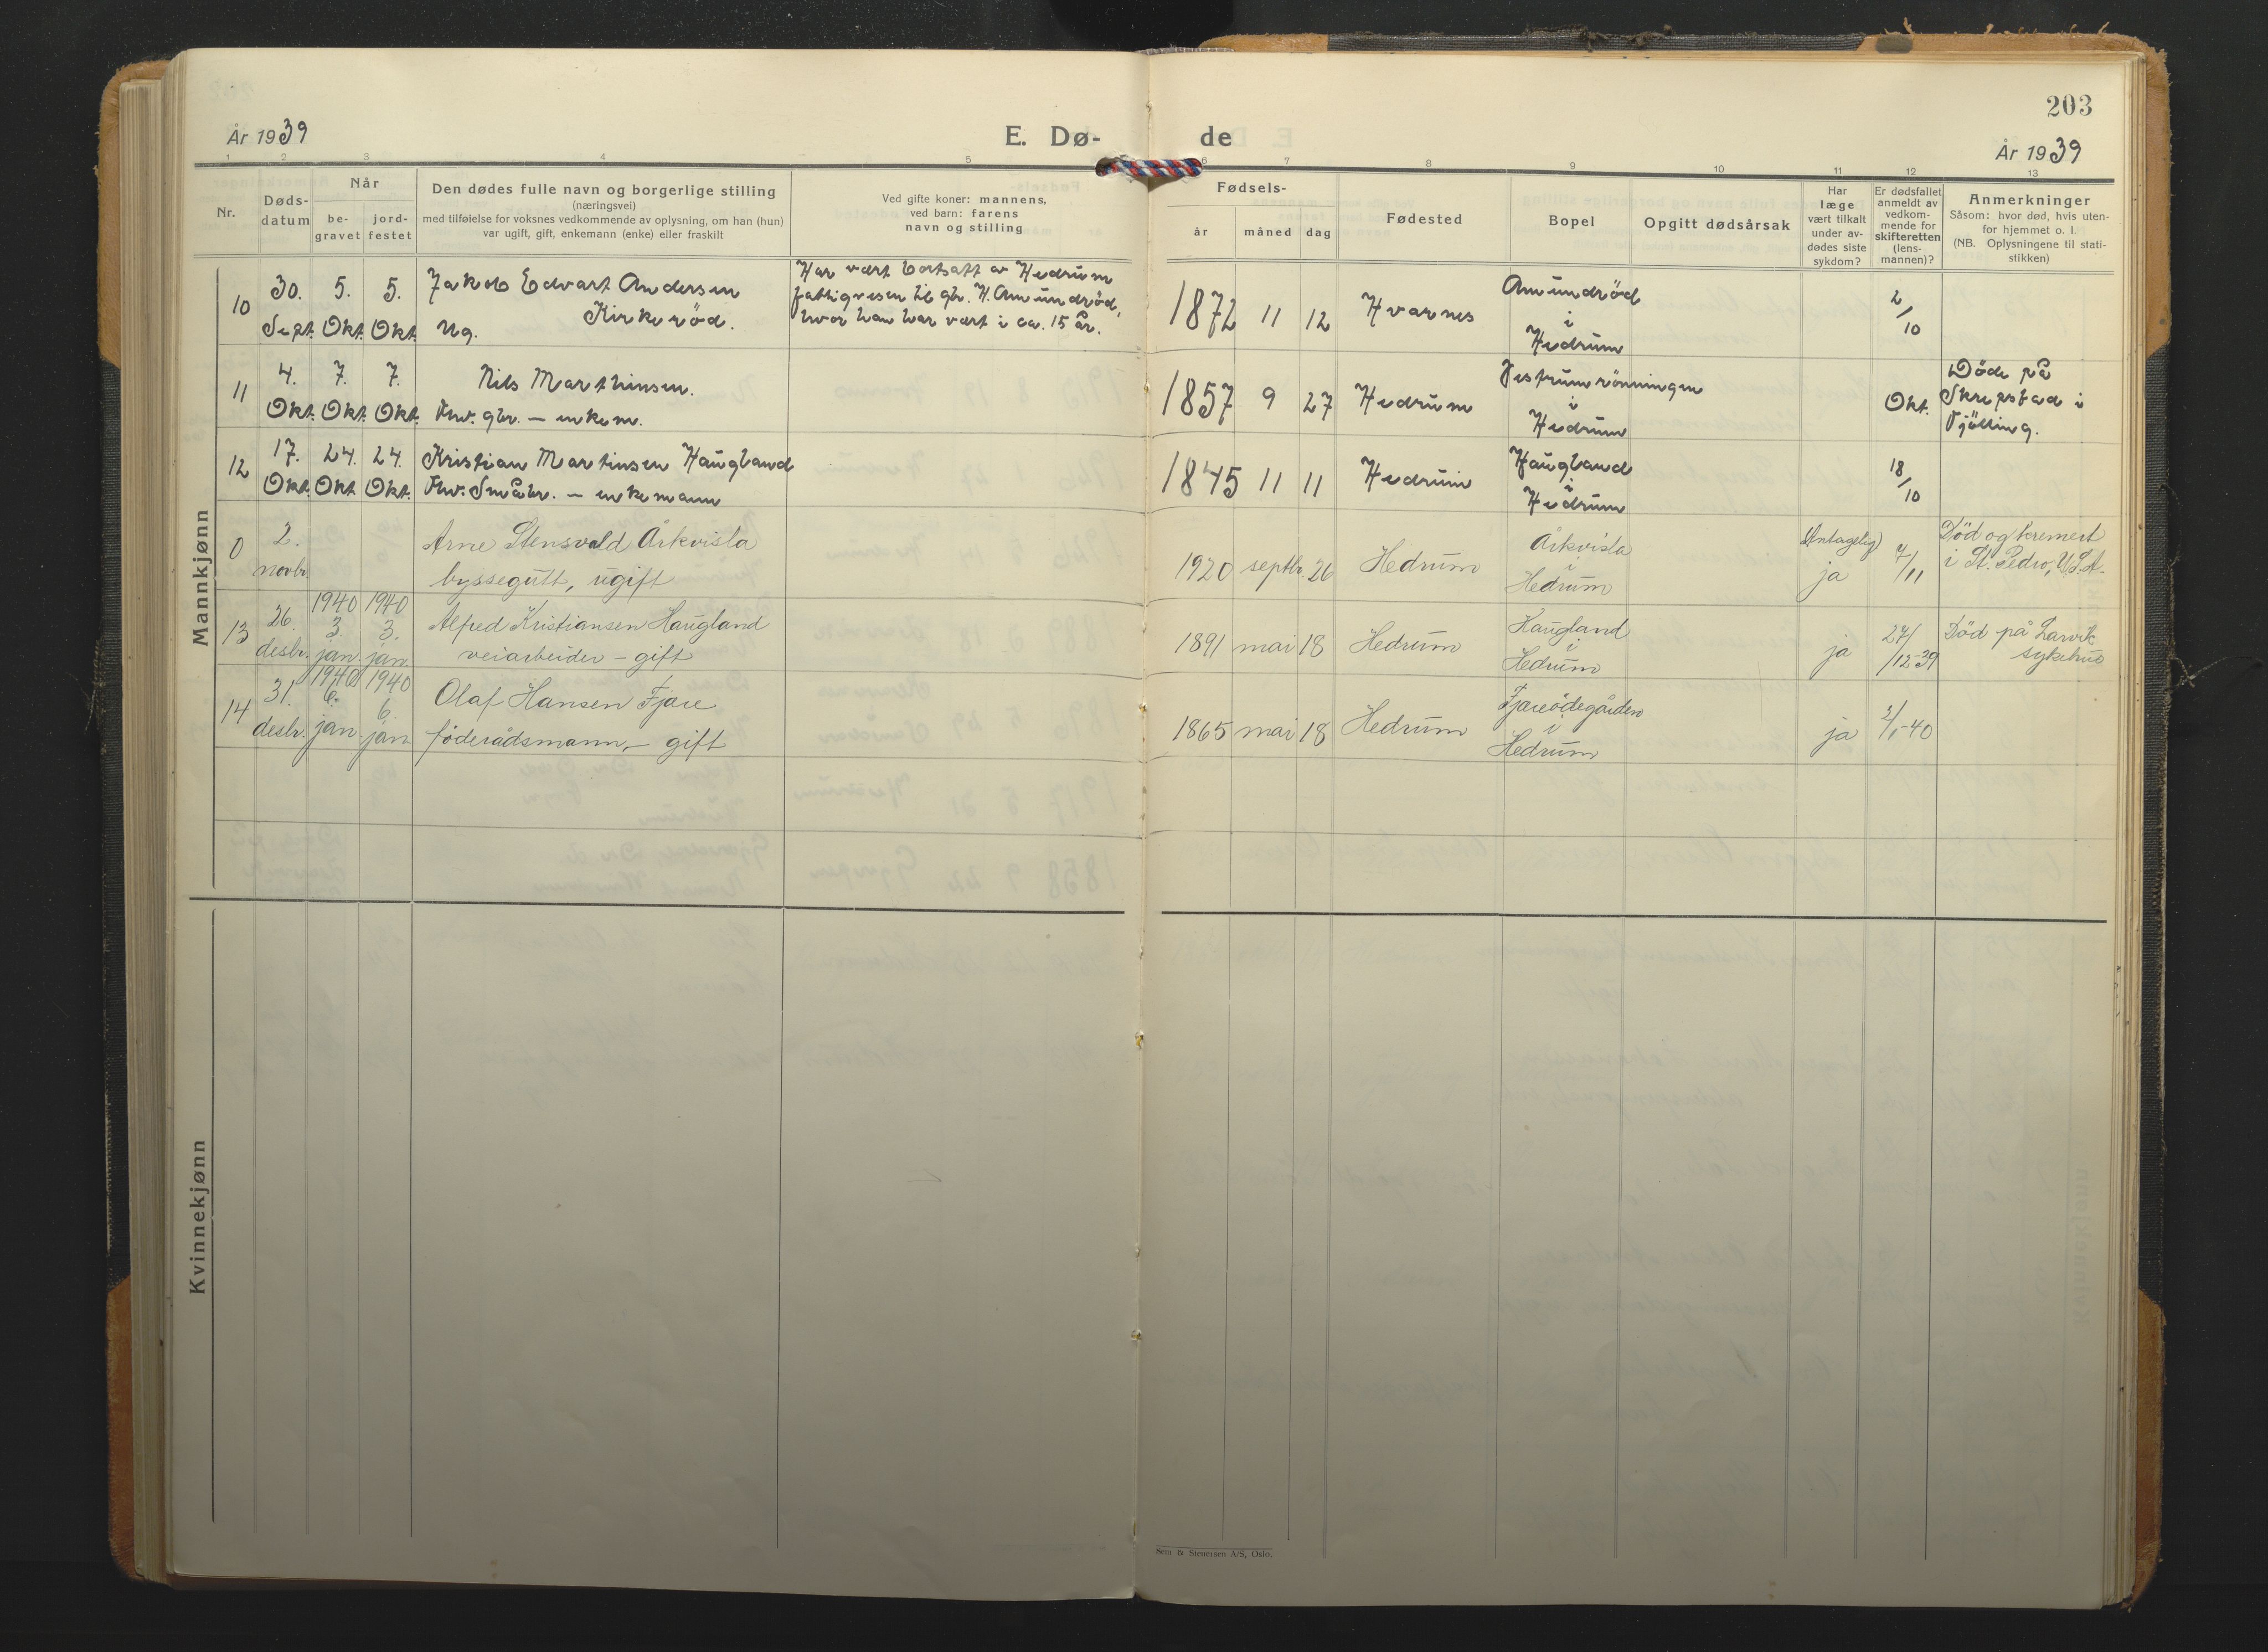 203
År 1939
E. Dø- de
År 1939
1 2 3 4 5 6 7 8 9 10 11 12 13
Nr.
Døds-
datum
Når
be-
gravet
jord-
festet
Den dødes fulle navn og borgerlige stilling
(næringsvei)
med tilføielse for voksnes vedkommende av oplysning, om han (hun)
var ugift, gift, enkemann (enke) eller fraskilt
Ved gifte koner: mannens,
ved barn: farens
navn og stilling
Fødsels-
år måned dag
Fødested
Bopel
Opgitt dødsårsak
Har
læge
vært tilkalt
under av-
dødes siste
sykdom?
Er dødsfallet
anmeldt av
vedkom-
mende for
skifteretten
(lens-
mannen)?
Anmerkninger
Såsom: hvor død, hvis uten-
for hjemmet o. l.
(NB. Oplysningene til stati-
stikken)
Mannkjønn
10
30.
Sept.
5.
Okt.
5.
Okt.
Jakob Edvart Andersen
Ug. Kirkeröd.
Har vært bortsatt av Hedrum
fattigvesen til gbr. H. Amundröd,
hvor han har vært i ca. 15 år.
1872 11 12
Hvarnes
Amundröd
i
Hedrum
2/10
11
4.
Okt.
7.
Okt.
7.
Okt.
Nils Marthinsen.
Fhv. gbr. – enkem.
1857 9 27
Hedrum
Jestrumrönningen
i
Hedrum
Okt.
Döde på
Skrepstad i
Tjölling.
12
17.
Okt.
24.
Okt.
24.
Okt.
Kristian Martinsen Haugland
Fhv. Småbr. – enkemann
1845 11 11
Hedrum
Haugland
i
Hedrum
18/10
0
2.
novbr.
Arne Stensvold Årkvisla
byssegutt, ugift
1920 septbr. 26
Hedrum
Årkvisla
i
Hedrum
(Antagelig)
ja
7/11
Död og kremert
i St. Pedro, U.S.A.
13
26.
desbr.
1940
3.
jan.
1940
3.
jan.
Alfred Kristiansen Haugland
veiarbeider – gift
1891 mai 18
Hedrum
Haugland
i
Hedrum
ja
27/12-39
Död på Larvik
sykehus
14
31.
desbr.
1940
6.
jan
1940
6.
jan.
Olaf Hansen Fjære
föderådsmann, – gift
1865 mai 18
Hedrum
Fjæreödegården
i
Hedrum
ja
2/1-40
Kvinnekjønn
Sem & Stenersen A/S, Oslo.